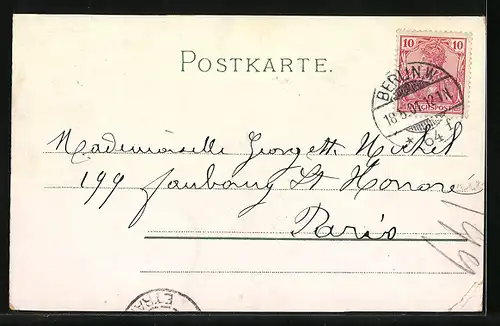 POSTKARTE.
10 10
REICHSPOST
BERLIN.W.
64
Mademoiselle Georgette Michel
199 faubourg St Honoré
Paris
199
ETRA